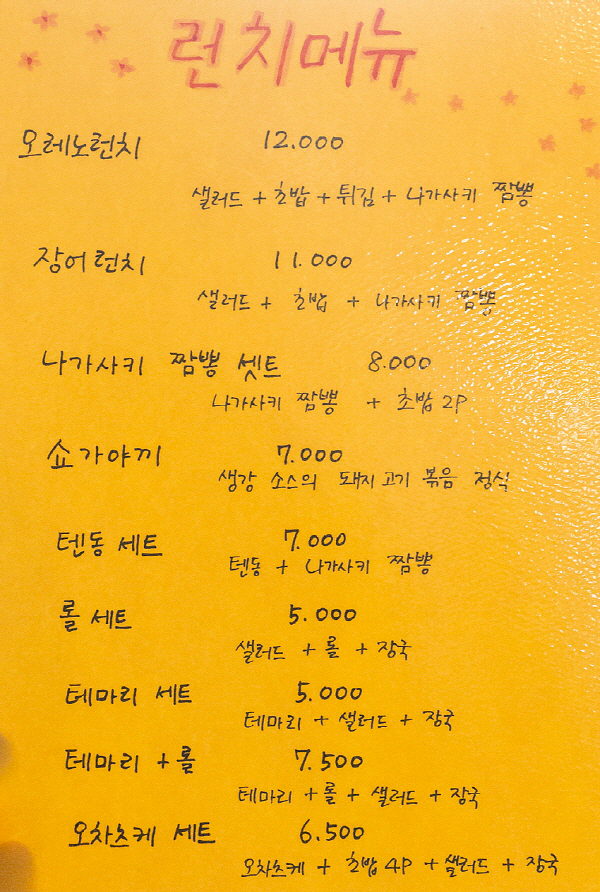 런치메뉴
오레노런치 12.000
샐러드 + 초밥 + 튀김 + 나가사키 짬뽕
장어런치 11.000
샐러드 + 초밥 + 나가사키 짬뽕
나가사키 짬뽕 셋트 8.000
나가사키 짬뽕 + 초밥 2P
쇼가야끼 7.000
생강 소스의 돼지고기 볶음 정식
텐동 세트 7.000
텐동 + 나가사키 짬뽕
롤 세트 5.000
샐러드 + 롤 + 장국
테마리 세트 5.000
테마리 + 샐러드 + 장국
테마리 + 롤 7.500
테마리 + 롤 + 샐러드 + 장국
오차츠케 세트 6.500
오차츠케 + 초밥 4P + 샐러드 + 장국